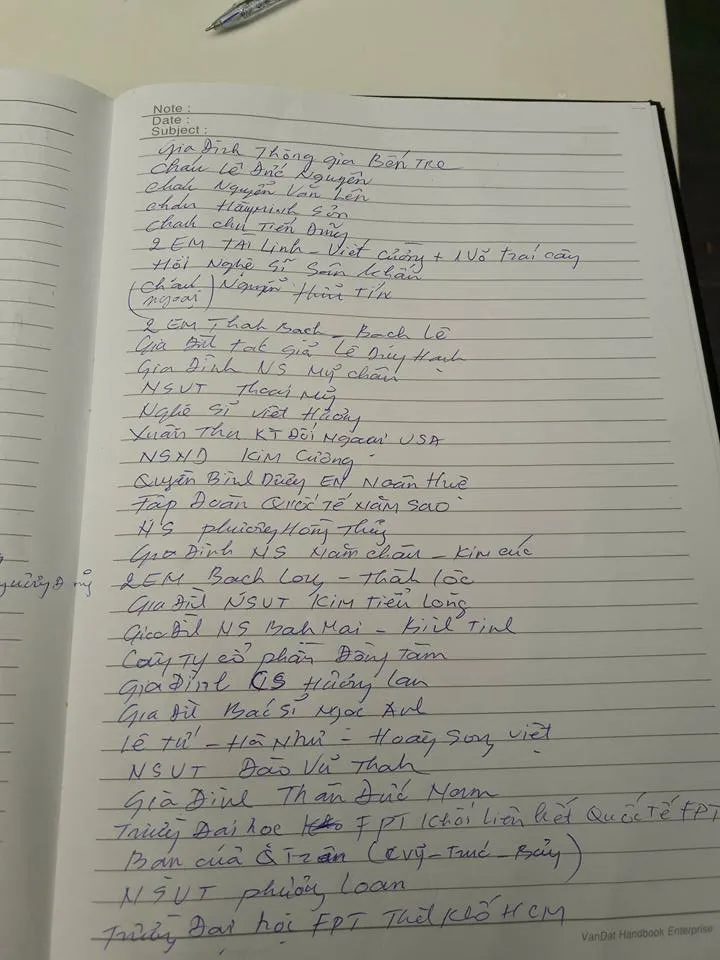 Note :
Date :
Subject :
Gia Đình Thông gia Bến Tre
Cháu Lê Đức Nguyên
Cháu Nguyễn Văn Lên
cháu Hàminh Sơn
Cháu chu Tiến Dũng
2 EM TÀI Linh - Việt Cường + 1 Vỏ trái cây
Hội Nghệ Sĩ Sân khấu
(cháu ngoại) Nguyễn Hữu Tín
2 EM Thah Bạch - Bạch Lê
Gia Đìh tát giả Lê Duy Hạnh
Gia Đình NS Mỹ châu
NSUT Thoại Mỹ
Nghệ Sĩ Việt Hương
Xuân Thu KT Đối Ngoại USA
NSND Kim Cương
Quyền Bình Duy EN Noãn Huê
Tập Đoàn Quốc Tế Năm Sao
NS phương Hồng Thủy
Gia Đình NS Năm châu - Kim cúc
2 EM Bạch Long - Thàh Lộc
Gia Đìh NSUT Kim Tiểu Long
Gia Đìh NS Bah Mai - Kiều Tinh
Công Ty cổ phần Đồng Tâm
Gia Đình CS Hương Lan
Gia Đìh Bác Sĩ Ngọc Anh
Lê Tứ - Hà Như - Hoàng Song Việt
NSUT Đào Vũ Thah
Gia Đình Thân Đức Nam
Trường Đại học FPT Khối Liên kết Quốc Tế FPT
Bạn của Q Trân (Vỹ - Trúc - Bảy)
NSUT phượng Loan
Trường Đại học FPT Thàh Phố HCM
VanDat Handbook Enterprise